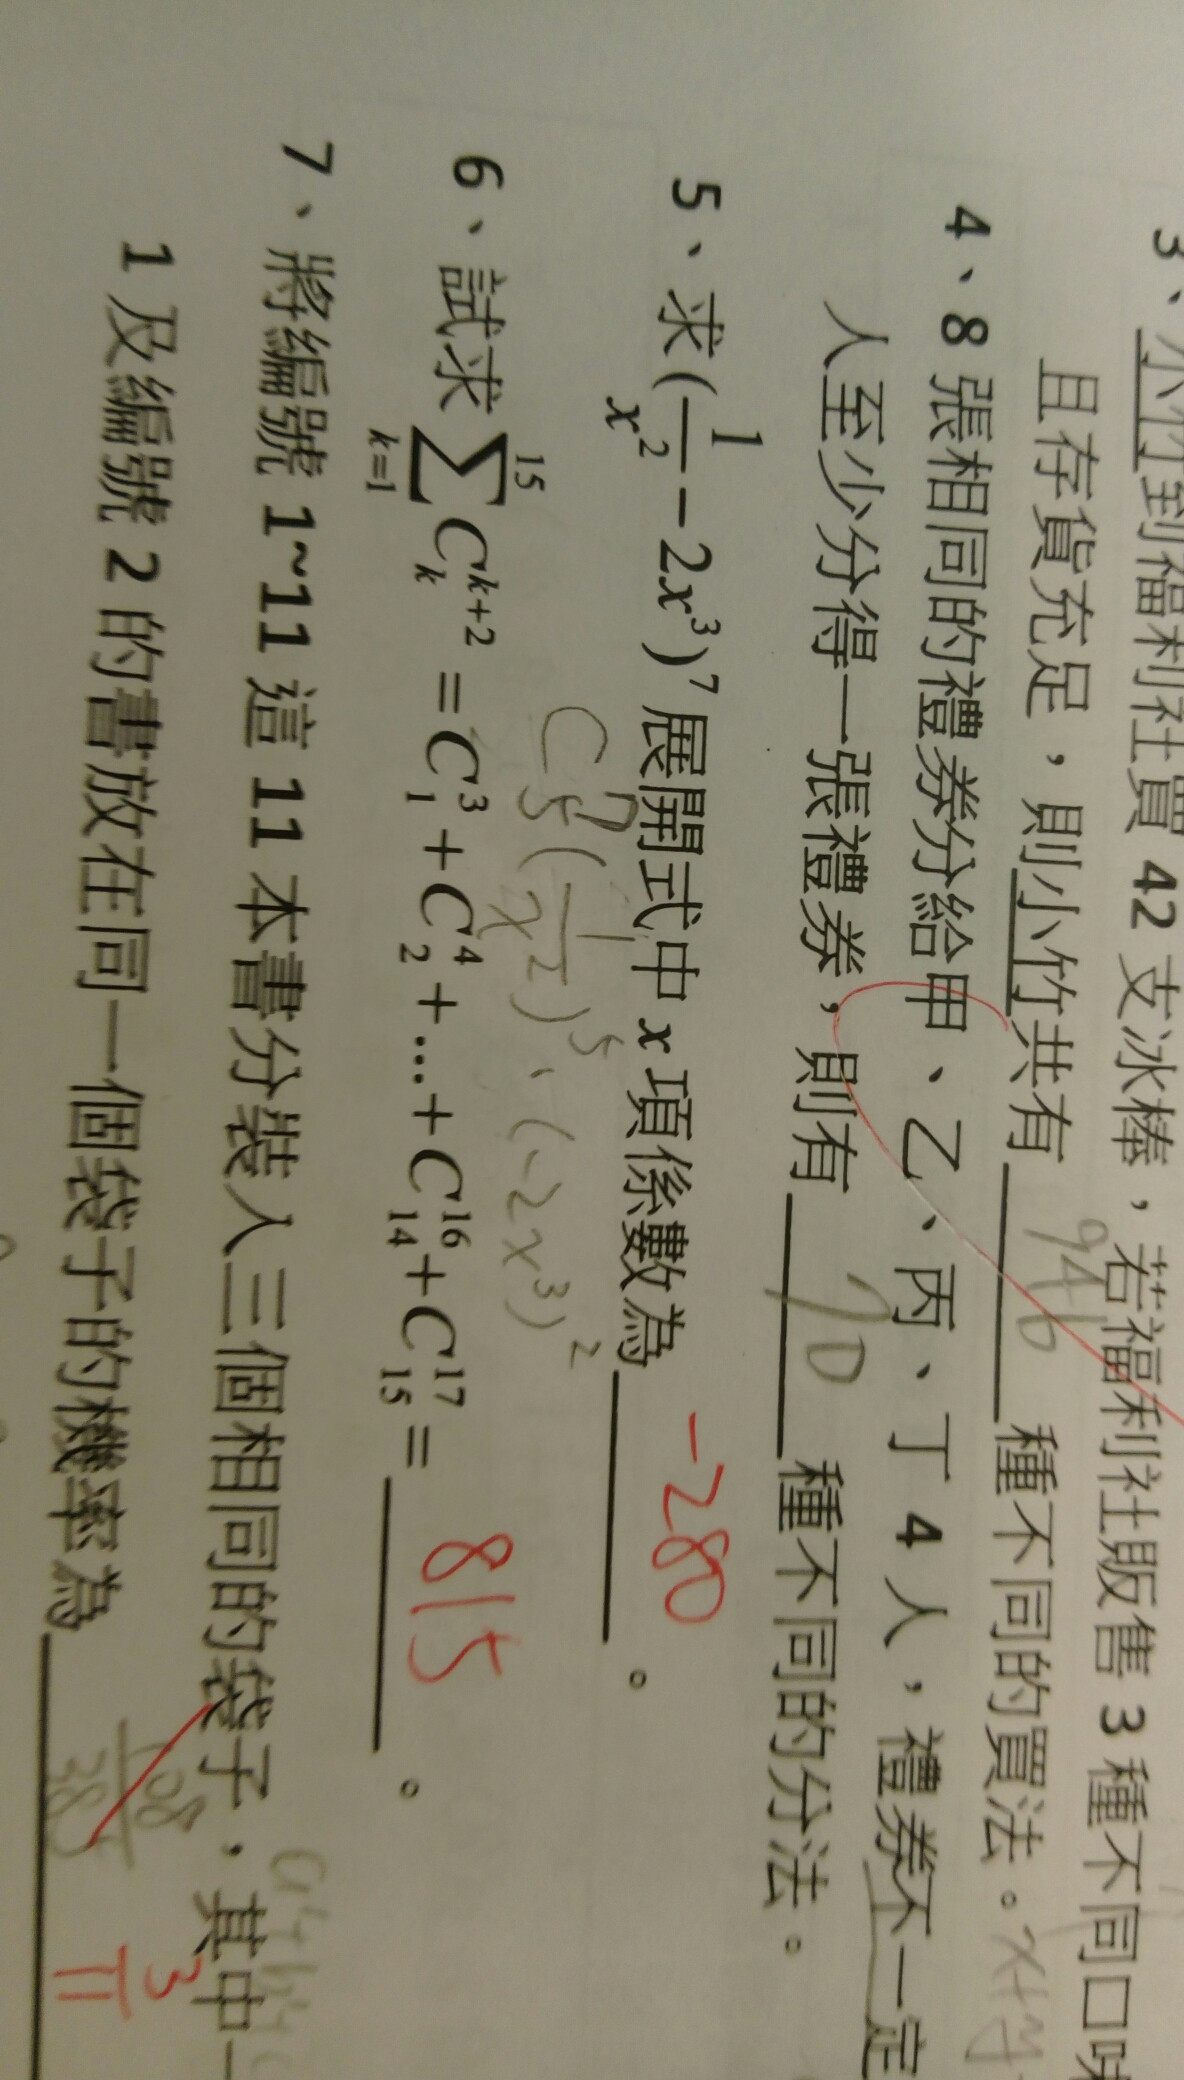 3、小竹到福利社買 42 支冰棒，若福利社販售 3 種不同口味
且存貨充足，則小竹共有 946 種不同的買法。
4、8 張相同的禮券分給甲、乙、丙、丁 4 人，禮券不一定
人至少分得一張禮券，則有 70 種不同的分法。
5、求(1/x²－2x³)⁷展開式中 x 項係數為 -280 。
C⁷₅(1/x²)⁵·(-2x³)²
6、試求 ∑ₖ₌₁¹⁵ Cₖᵏ⁺² = C₁³ + C₂⁴ + ... + C₁₄¹⁶ + C₁₅¹⁷ = 815 。
7、將編號 1~11 這 11 本書分裝入三個相同的袋子，其中一
1 及編號 2 的書放在同一個袋子的機率為 3/11